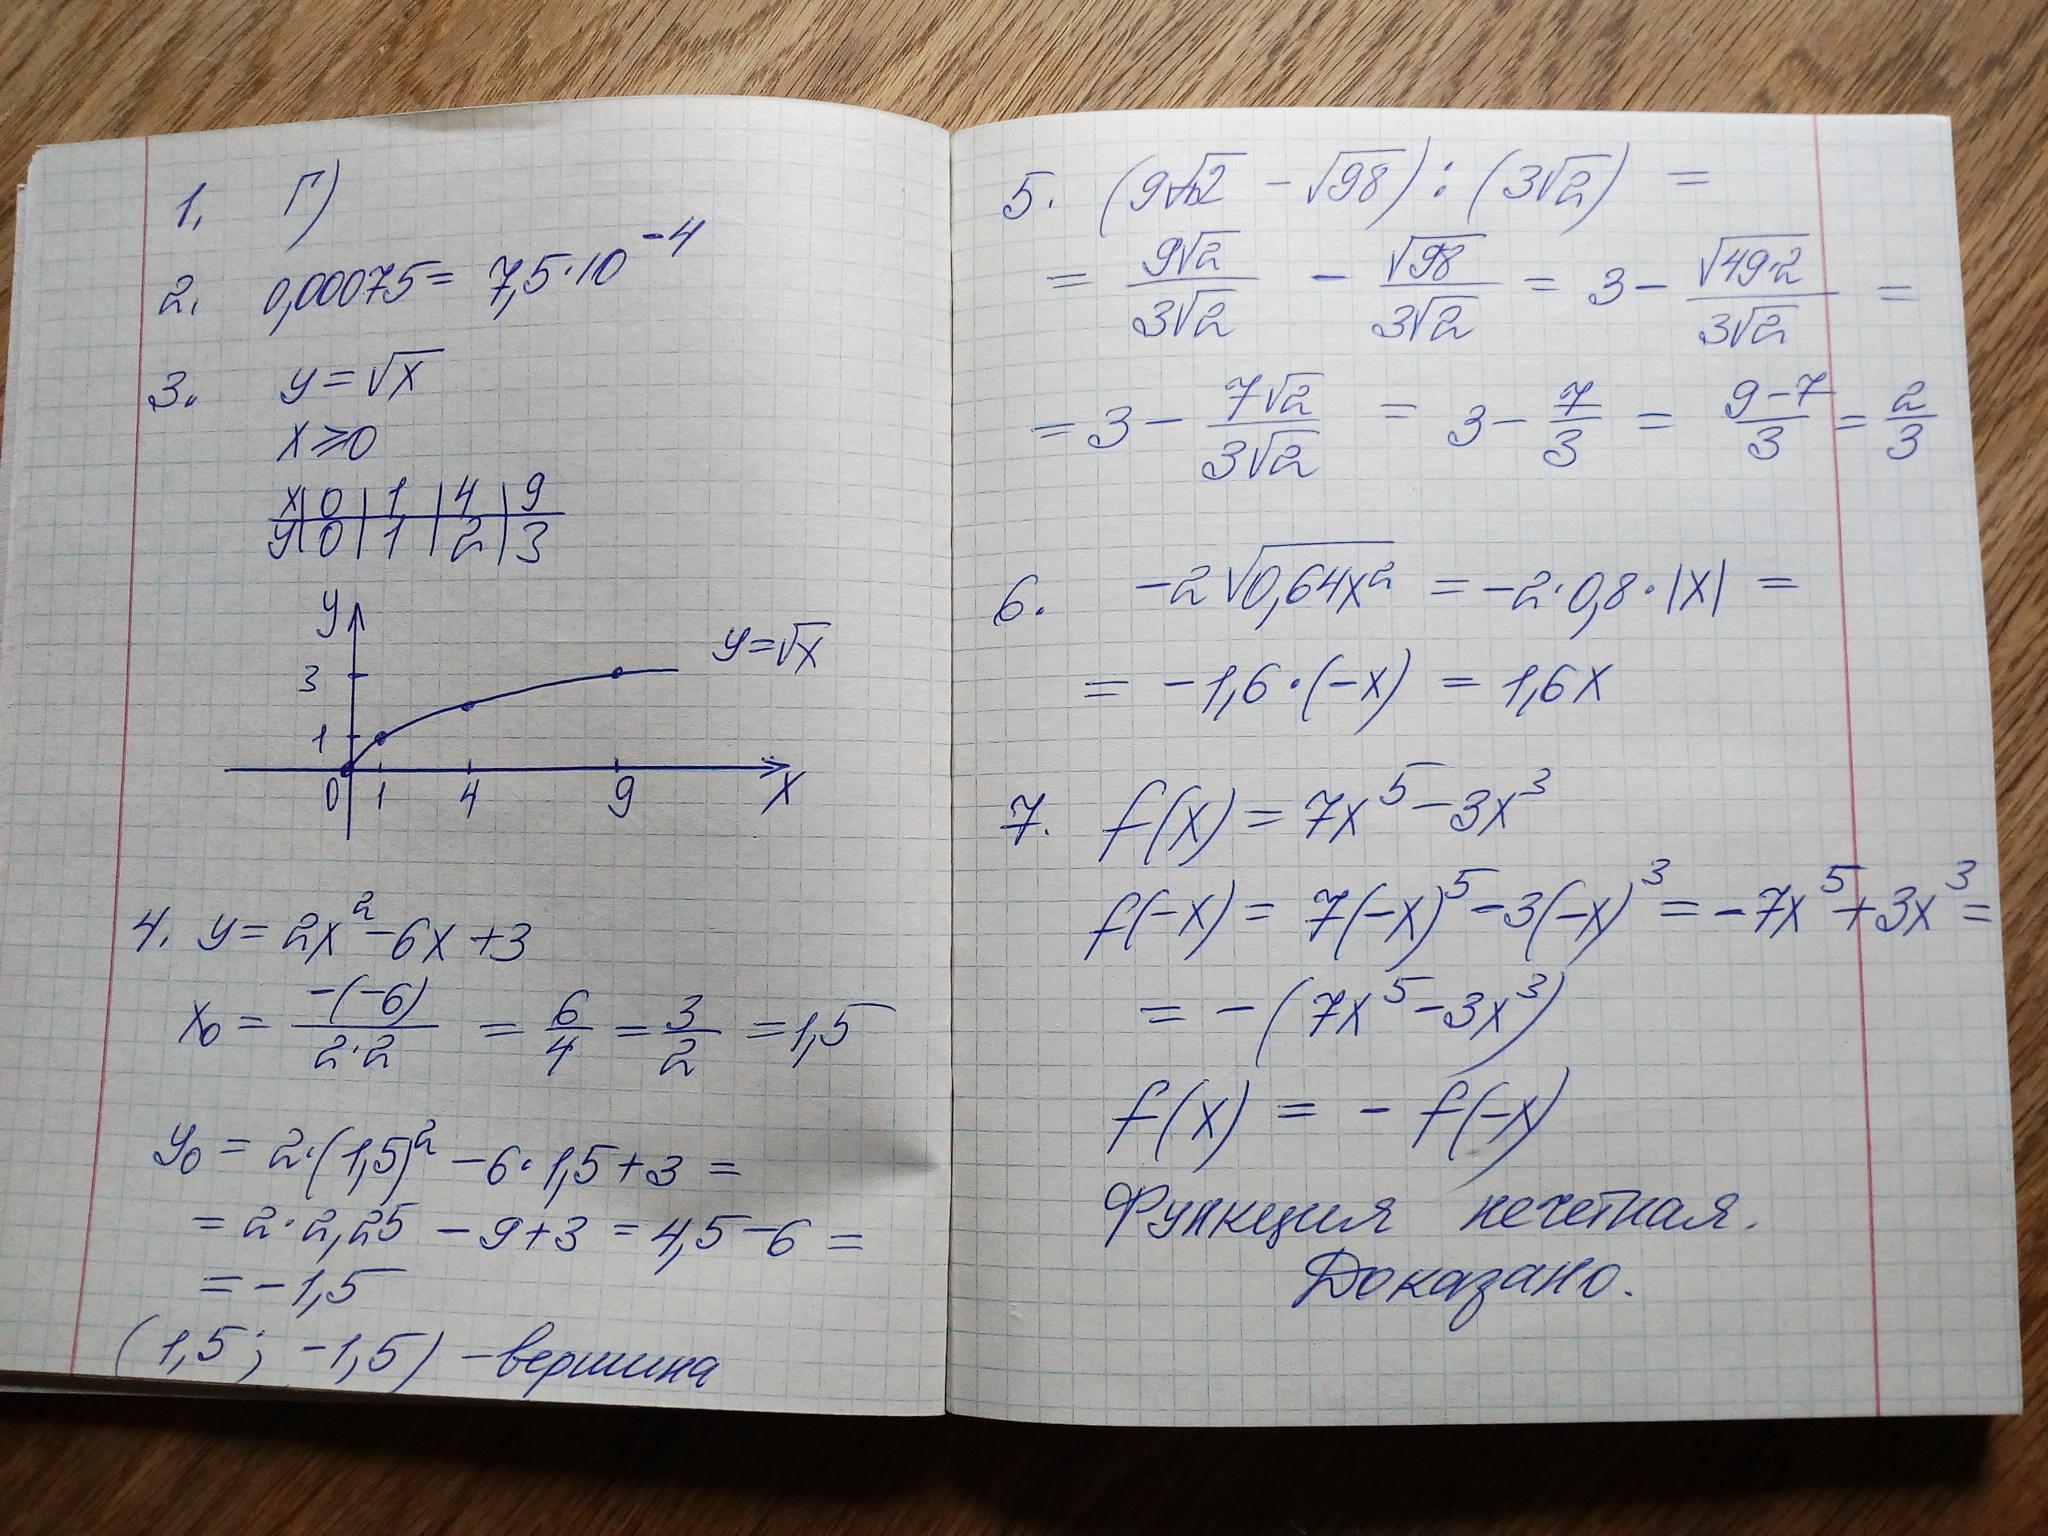 1. Г)
2. 0,00075 = 7,5·10⁻⁴
3. y = √x
x ≥ 0
x | 0 | 1 | 4 | 9
y | 0 | 1 | 2 | 3
y
y = √x
3
1
0 1 4 9 x
4. y = 2x² - 6x + 3
x₀ = -(-6)/2·2 = 6/4 = 3/2 = 1,5
y₀ = 2·(1,5)² - 6·1,5 + 3 =
= 2·2,25 - 9 + 3 = 4,5 - 6 =
= -1,5
(1,5; -1,5) - вершина
5. (9√2 - √98) : (3√2) =
= 9√2/3√2 - √98/3√2 = 3 - √49·2/3√2 =
= 3 - 7√2/3√2 = 3 - 7/3 = 9-7/3 = 2/3
6. -2√0,64x² = -2·0,8·|x| =
= -1,6·(-x) = 1,6x
7. f(x) = 7x⁵ - 3x³
f(-x) = 7(-x)⁵ - 3(-x)³ = -7x⁵ + 3x³ =
= -(7x⁵ - 3x³)
f(x) = - f(-x)
Функция нечетная.
Доказано.